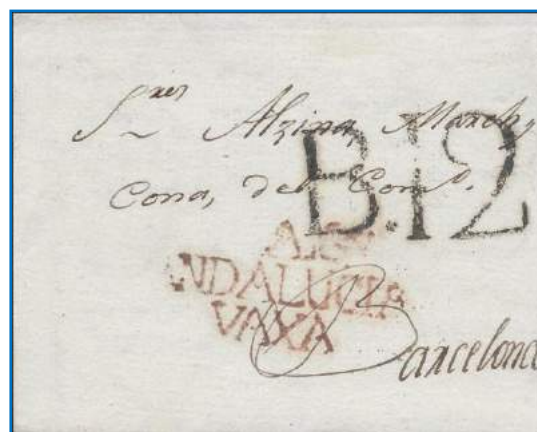 S.res Alzina, March, y
Cona, del Com.o
B.12
ANDALUCIA
VAXA
Barcelona